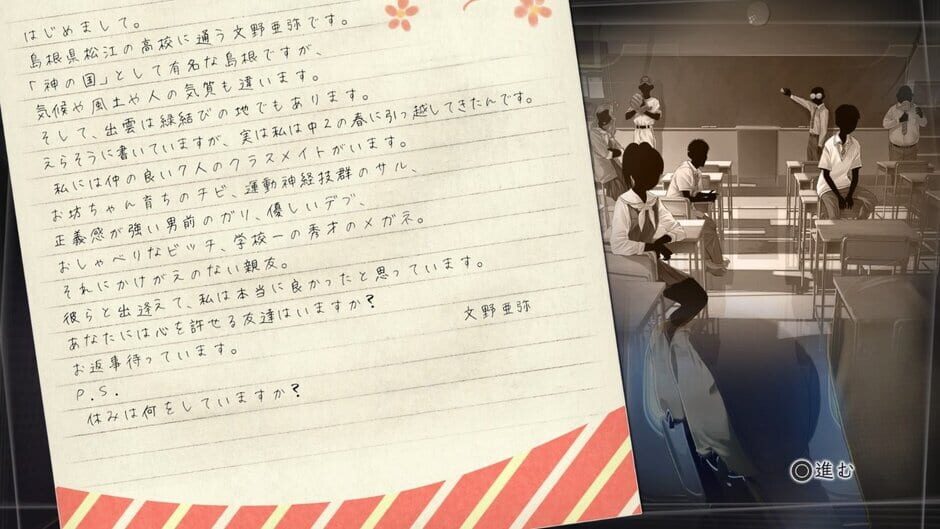 はじめまして。
島根県松江の高校に通う文野亜弥です。
「神の国」として有名な島根ですが、
気候や風土や人の気質も違います。
そして、出雲は縁結びの地でもあります。
えらそうに書いていますが、実は私は中2の春に引っ越してきたんです。
私には仲の良い7人のクラスメイトがいます。
お坊ちゃん育ちのチビ、運動神経抜群のサル、
正義感が強い男前のガリ、優しいデブ、
おしゃべりなビッチ、学校一の秀才のメガネ。
それにかけがえのない親友。
彼らと出逢えて、私は本当に良かったと思っています。
あなたには心を許せる友達はいますか?
お返事待っています。
文野亜弥
P.S.
休みは何をしていますか?
進む